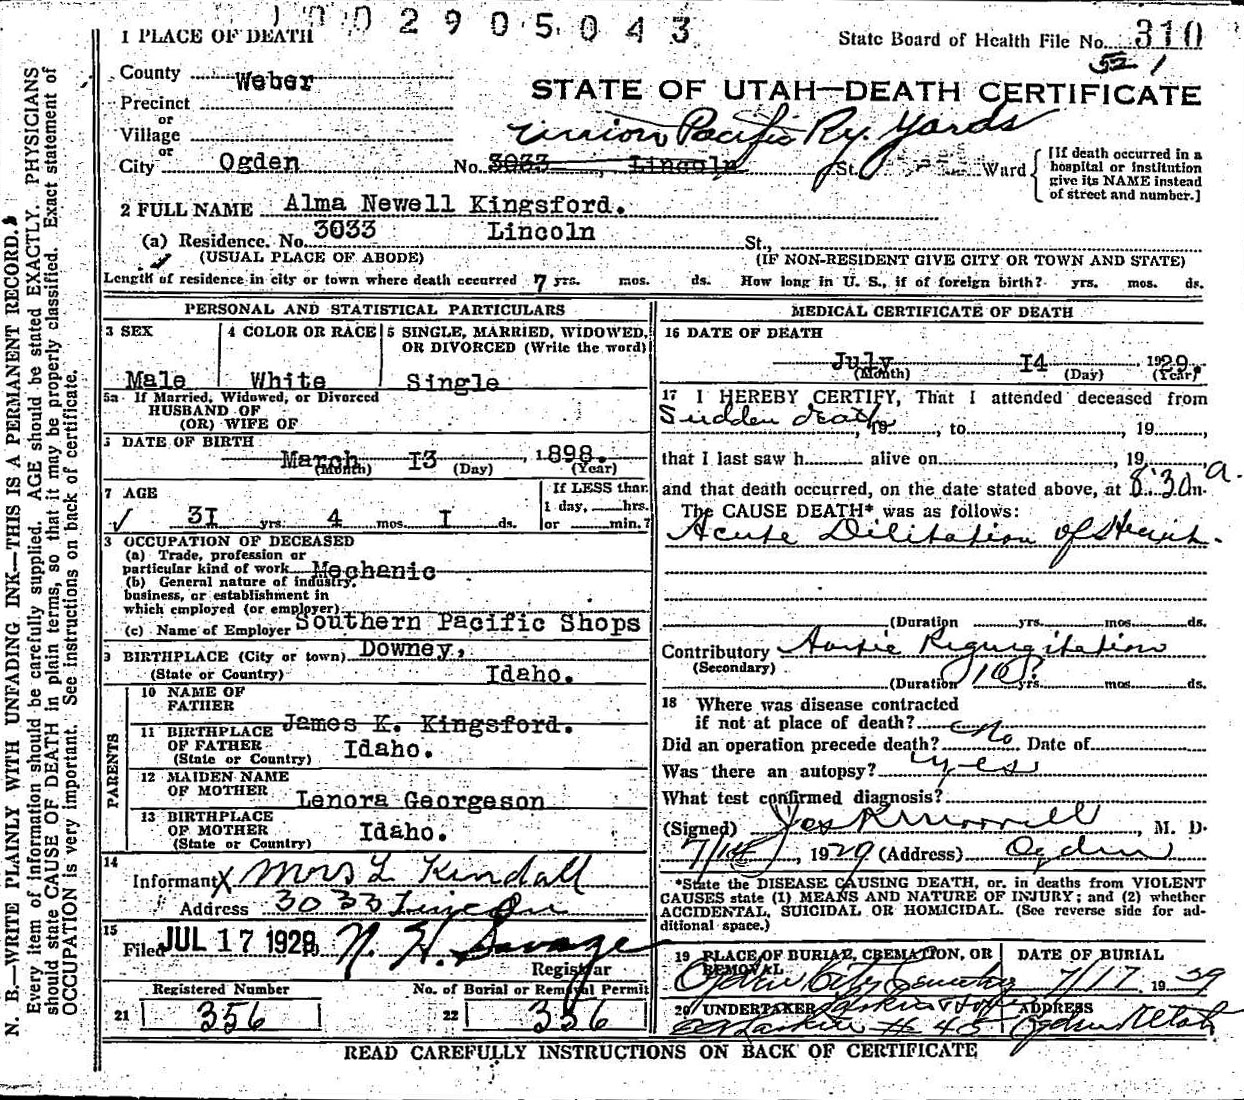 1002905043
1 PLACE OF DEATH
State Board of Health File No. 310
52 1
County Weber
STATE OF UTAH—DEATH CERTIFICATE
Precinct
or
Village
Union Pacific Ry. Yards
or
City Ogden No. 3033 Lincoln St. Ward
[If death occurred in a hospital or institution give its NAME instead of street and number.]
2 FULL NAME Alma Newell Kingsford.
(a) Residence. No. 3033 Lincoln St.,
(USUAL PLACE OF ABODE) (IF NON-RESIDENT GIVE CITY OR TOWN AND STATE)
Length of residence in city or town where death occurred 7 yrs. mos. ds. How long in U. S., if of foreign birth? yrs. mos. ds.
PERSONAL AND STATISTICAL PARTICULARS
3 SEX
Male
4 COLOR OR RACE
White
5 SINGLE, MARRIED, WIDOWED,
OR DIVORCED (Write the word)
Single
5a If Married, Widowed, or Divorced
HUSBAND OF
(OR) WIFE OF
DATE OF BIRTH
March I3 , 1898.
(Month) (Day) (Year)
7 AGE
3I yrs. 4 mos. I ds.
If LESS than
1 day, hrs.
or min.?
OCCUPATION OF DECEASED
(a) Trade, profession or
particular kind of work Mechanic
(b) General nature of industry,
business, or establishment in
which employed (or employer)
(c) Name of Employer Southern Pacific Shops
9 BIRTHPLACE (City or town) Downey,
(State or Country) Idaho.
PARENTS
10 NAME OF
FATHER
James K. Kingsford.
11 BIRTHPLACE
OF FATHER Idaho.
(State or Country)
12 MAIDEN NAME
OF MOTHER
Lenora Georgeson
13 BIRTHPLACE
OF MOTHER Idaho.
(State or Country)
14
Informant X Mrs L Kindall
Address 3033 Lincoln
15
Filed JUL 17 1929 N. H. Savage
Registrar
Registered Number
21 356
No. of Burial or Removal Permit
22 356
MEDICAL CERTIFICATE OF DEATH
16 DATE OF DEATH
July I4 , 1929.
(Month) (Day) (Year)
17 I HEREBY CERTIFY, That I attended deceased from
Sudden death, 19 , to , 19 ,
that I last saw h alive on , 19 ,
and that death occurred, on the date stated above, at 8:30 a. m.
The CAUSE DEATH* was as follows:
Acute Dilitation of Heart.
(Duration yrs. mos. ds.
Contributory Aortic Regurgitation
(Secondary)
(Duration 10? yrs. mos. ds.
18 Where was disease contracted
if not at place of death?
Did an operation precede death? No Date of
Was there an autopsy? yes
What test confirmed diagnosis?
(Signed) Jos R Morrell , M. D.
, 1929 (Address) Ogden
*State the DISEASE CAUSING DEATH, or, in deaths from VIOLENT
CAUSES state (1) MEANS AND NATURE OF INJURY; and (2) whether
ACCIDENTAL, SUICIDAL OR HOMICIDAL. (See reverse side for ad-
ditional space.)
19 PLACE OF BURIAL, CREMATION, OR
REMOVAL
Ogden City Cemetery
DATE OF BURIAL
7/17 1929
20 UNDERTAKER Larkin & Sons
Larkin # 45
ADDRESS
Ogden Utah
READ CAREFULLY INSTRUCTIONS ON BACK OF CERTIFICATE
N. B.—WRITE PLAINLY WITH UNFADING INK—THIS IS A PERMANENT RECORD.
Every item of information should be carefully supplied. AGE should be stated EXACTLY. PHYSICIANS
should state CAUSE OF DEATH in plain terms, so that it may be properly classified. Exact statement of
OCCUPATION is very important. See instructions on back of certificate.